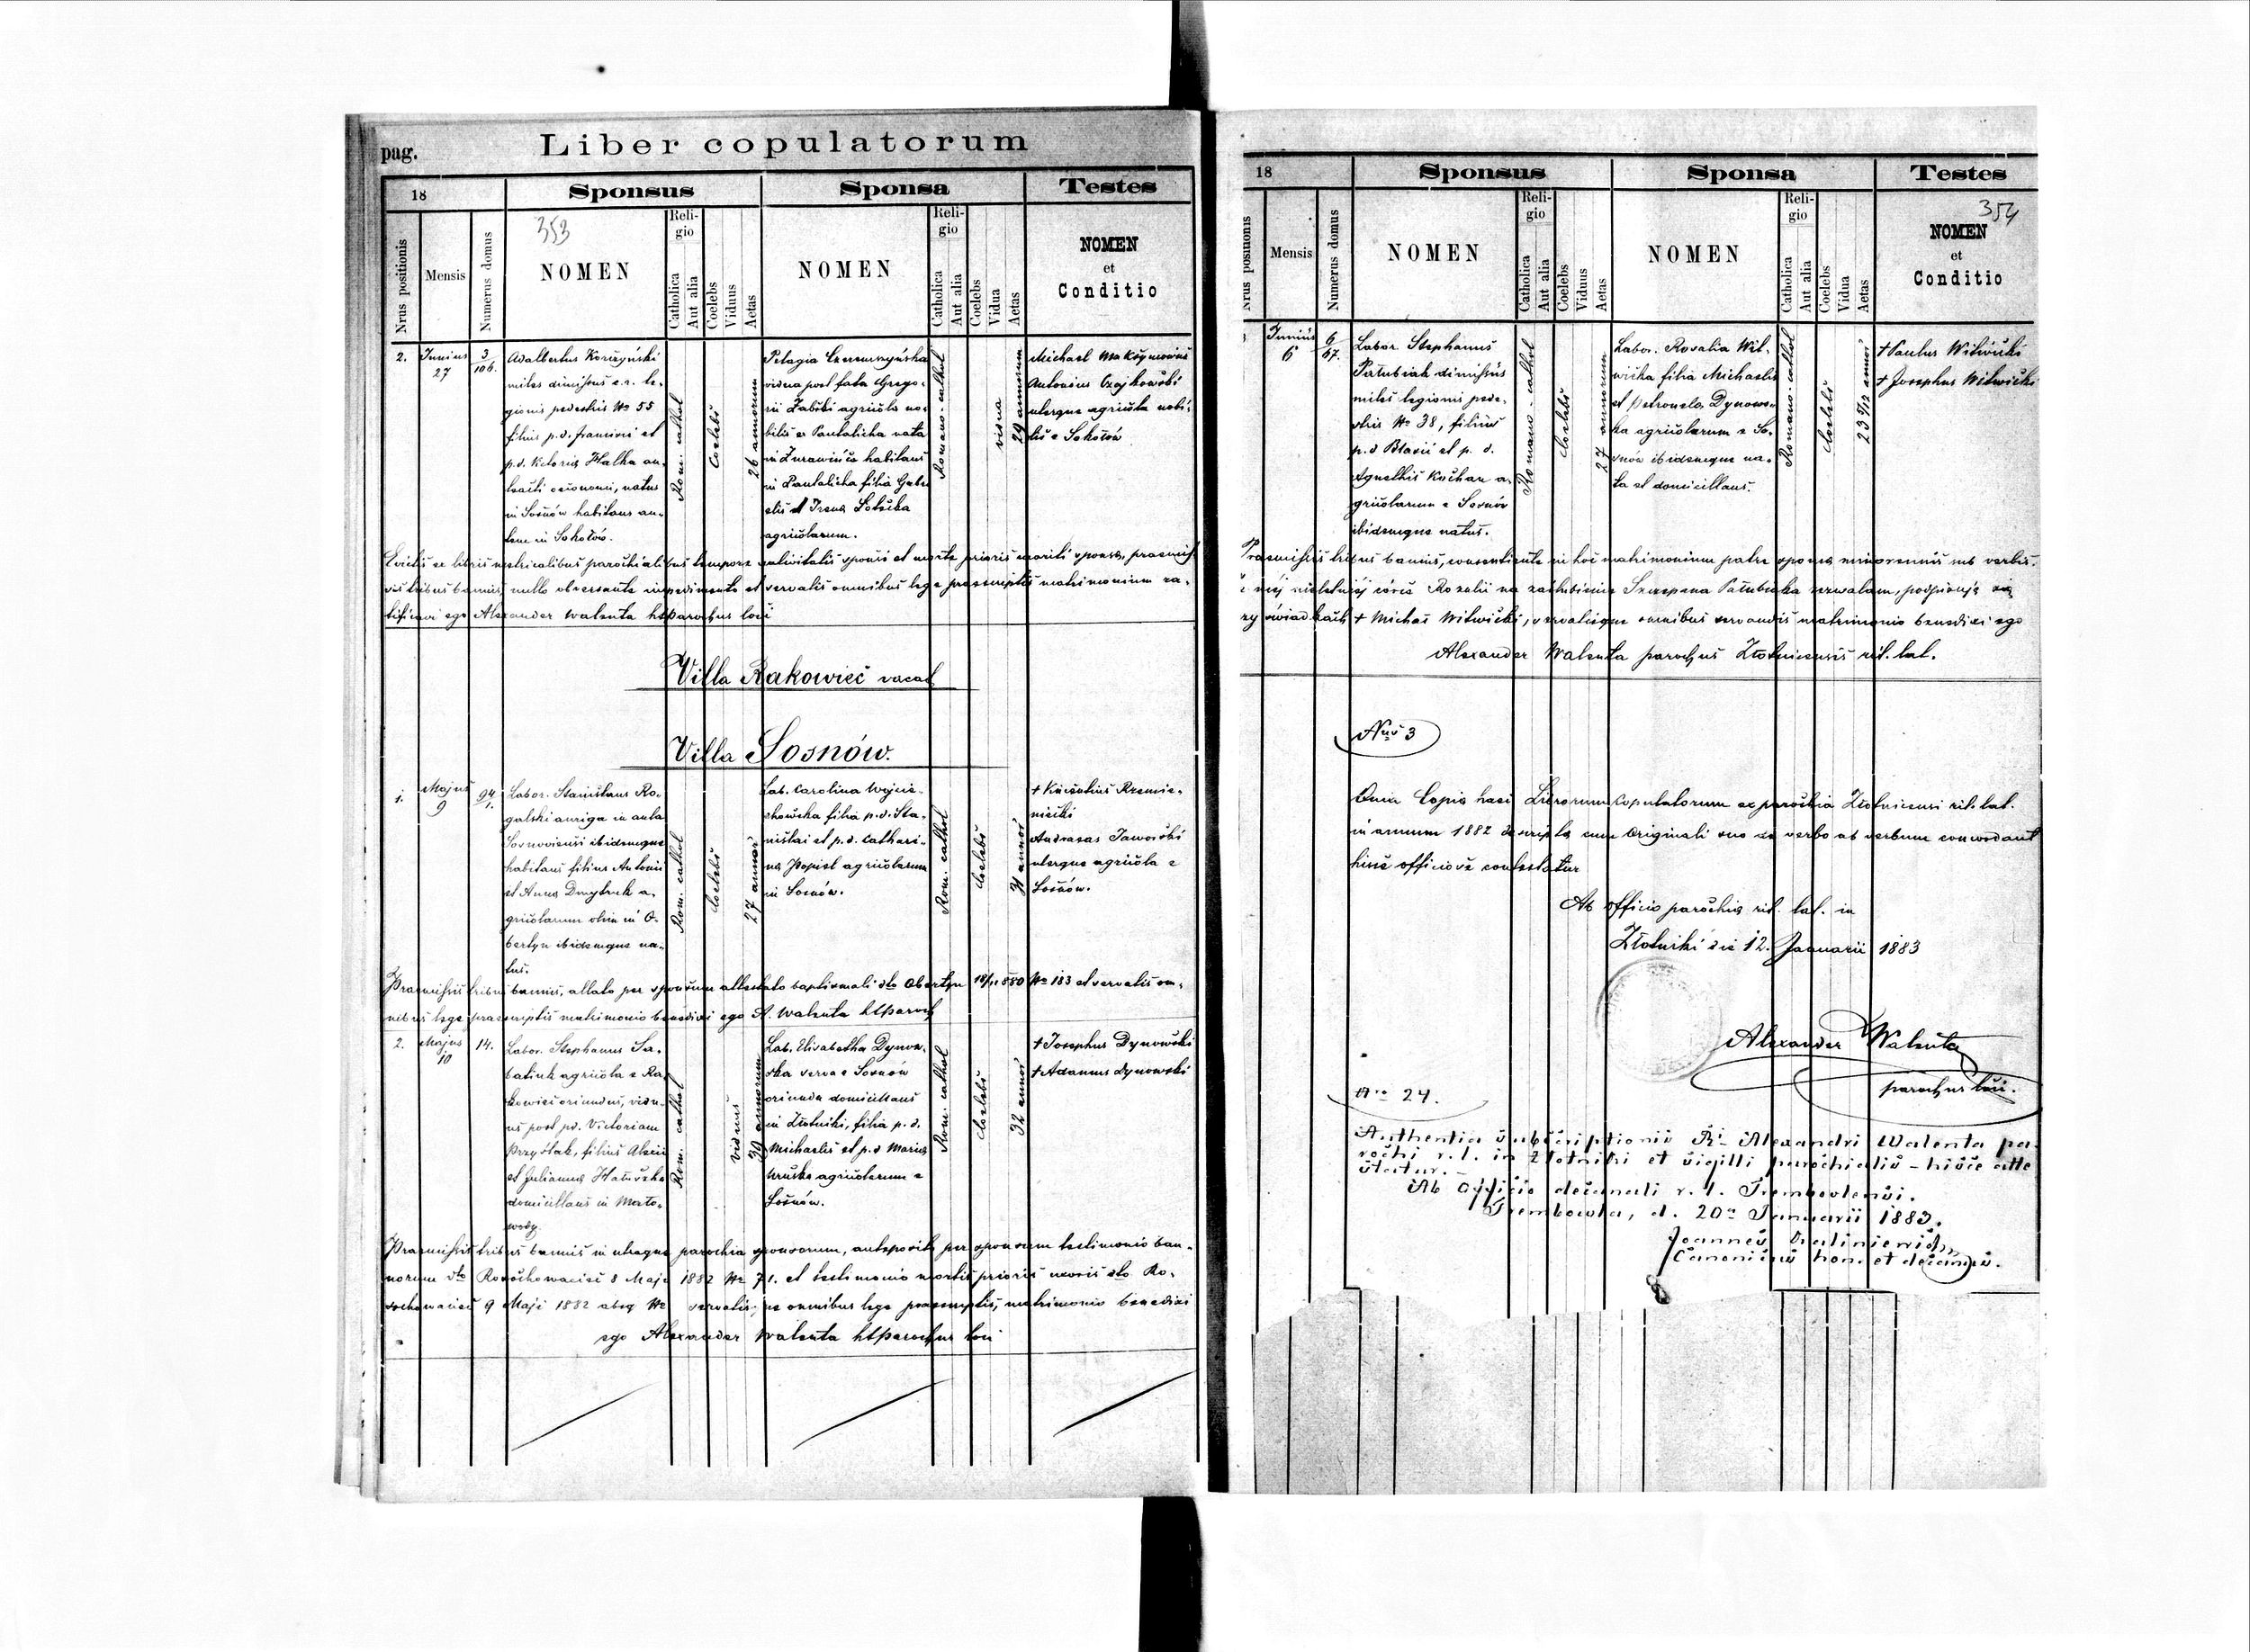 pag.
Liber copulatorum
18
Sponsus
Sponsa
Testes
Nrus positionis
Mensis
Numerus domus
353
NOMEN
Religio
Catholica
Aut alia
Coelebs
Viduus
Aetas
NOMEN
Religio
Catholica
Aut alia
Coelebs
Vidua
Aetas
NOMEN
et
Conditio
2.
Junius
27
3
106.
Adalbertus
miles dimissus c.r. le-
gionis pedestris No 55
filius p.d. Francisci et
p.d. Victoria Halka
oeconomi, natus
in Sosnów habitans au-
tem in Sokołów.
Rom. cathol
Coelebs
26 annorum
Pelagia
vidua post fata Grego-
rii Zabski agricola no-
bilis ex Pantalicha nata
in habitans
in Pantalicha filia Gabri
elis et Irena
agricolarum.
Romano-cathol
vidua
29 annorum
Michael Maksymowicz
Antonius Czajkowski
uterque agricola nobi-
lis e Sokołów
libris metricalibus parochialibus tempore nativitatis sponsi et morte prioris mariti sponsa, praemis
sis tribus bannis, nullo obversante impedimento et servatis omnibus lege praescriptis matrimonium ra-
tificavi ego Alexander Walenta parochus loci
Villa Rakowiec vacat
Villa Sosnów.
1.
Majus
9
94
1.
Labor. Stanislaus Ro-
galski auriga in aula
Sosnoviensi ibidemque
habitans filius Antonii
et Anna Dmytruk a-
gricolarum olim in O-
bertyn ibidemque na-
tus.
Rom. cathol
Coelebs
27 annor
Lab. Carolina Wojcie-
chowska filia p.d. Sta-
nislai et p.d. Cathari-
na Popiel agricolarum
in Sosnów.
Rom. cathol
Coelebs
+
Andreas Jaworski
uterque agricola e
Sosnów.
Praemissis tribus bannis, allato per sponsum attestato baptismali dto Obertyn No 183 et servatis om-
nibus lege praescriptis matrimonio benedixi ego A. Walenta
2.
Majus
10
14.
Labor. Stephanus Sa-
batiuk agricola e Ra-
kowiec oriundus, vidu-
us post pd. Victoriam
filius
et Juliana
domicilians in
Rom. cathol
Viduus
30 annorum
Lab. Elisabetha Dynow-
ska serva e Sosnów
oriunda domicilians
in Złotniki, filia p.d.
Michaelis et p.d. Maria
agricolarum e
Sosnów.
Rom. cathol
Coelebs
32 annor
+ Josephus Dynowski
+ Adamus Dynowski
Praemissis tribus bannis in utraque parochia sponsorum, anteposito per sponsum testimonio ban-
norum dto 8 Maji 1882 No 71. et testimonio mortis prioris uxoris dto Ro-
9 Maji 1882 absq No servatisque omnibus lege praescriptis, matrimonio benedixi
ego Alexander Walenta parochus loci
18
Sponsus
Sponsa
Testes
Mensis
Numerus domus
NOMEN
Religio
Catholica
Aut alia
Coelebs
Viduus
Aetas
NOMEN
Religio
Catholica
Aut alia
Coelebs
Vidua
Aetas
354
NOMEN
et
Conditio
Junius
6
6
67.
Labor. Stephanus
Patubiak dimissus
miles legionis pede-
stris No 38, filius
p.d Blasii et p. d.
Agnethis Kuchar a-
gricolarum e Sosnów
ibidemque natus.
Romano-cathol
Coelebs
27 annorum
Labor. Rosalia Wit-
wicka filia Michaelis
et Petronela Dynows-
ka agricolarum e So-
snów ibidemque na-
ta et domicilians.
Romano-cathol
Coelebs
23 5/12 annor
+ Paulus Witwicki
+ Josephus Witwicki
Praemissis tribus bannis, consentiente in hoc matrimonium patre sponsa minorennis sub verbis:
mej nieletniej córce Rozalii na zaślubienie Szczepana Patubiaka zezwalam, podpisuję się
przy świadkach + Michał Witwicki, servatisque omnibus servandis matrimonio benedixi ego
Alexander Walenta parochus Złotnicensis rit. lat.
Nus 3
Quia Copia haec Librorum Copulatorum ex parochia Złotnicensi rit. lat.
in annum 1882 descripta cum Originali suo de verbo ad verbum concordant
hisce officiose contestatur
Ab officio parochia rit. lat. in
Złotniki die 12. Januarii 1883
Alexander Walenta
parochus loci.
Nro 24.
Authentia subscriptionis Alexandri Walenta pa-
rochi r.l. in Złotniki et sigilli parochialis - hisce atte
statur.-
Ab officio decanali r. l. Trembovlensi.
Trembowla, d. 20 Januarii 1883.
Joannes
Canonicus hon. et decanus.